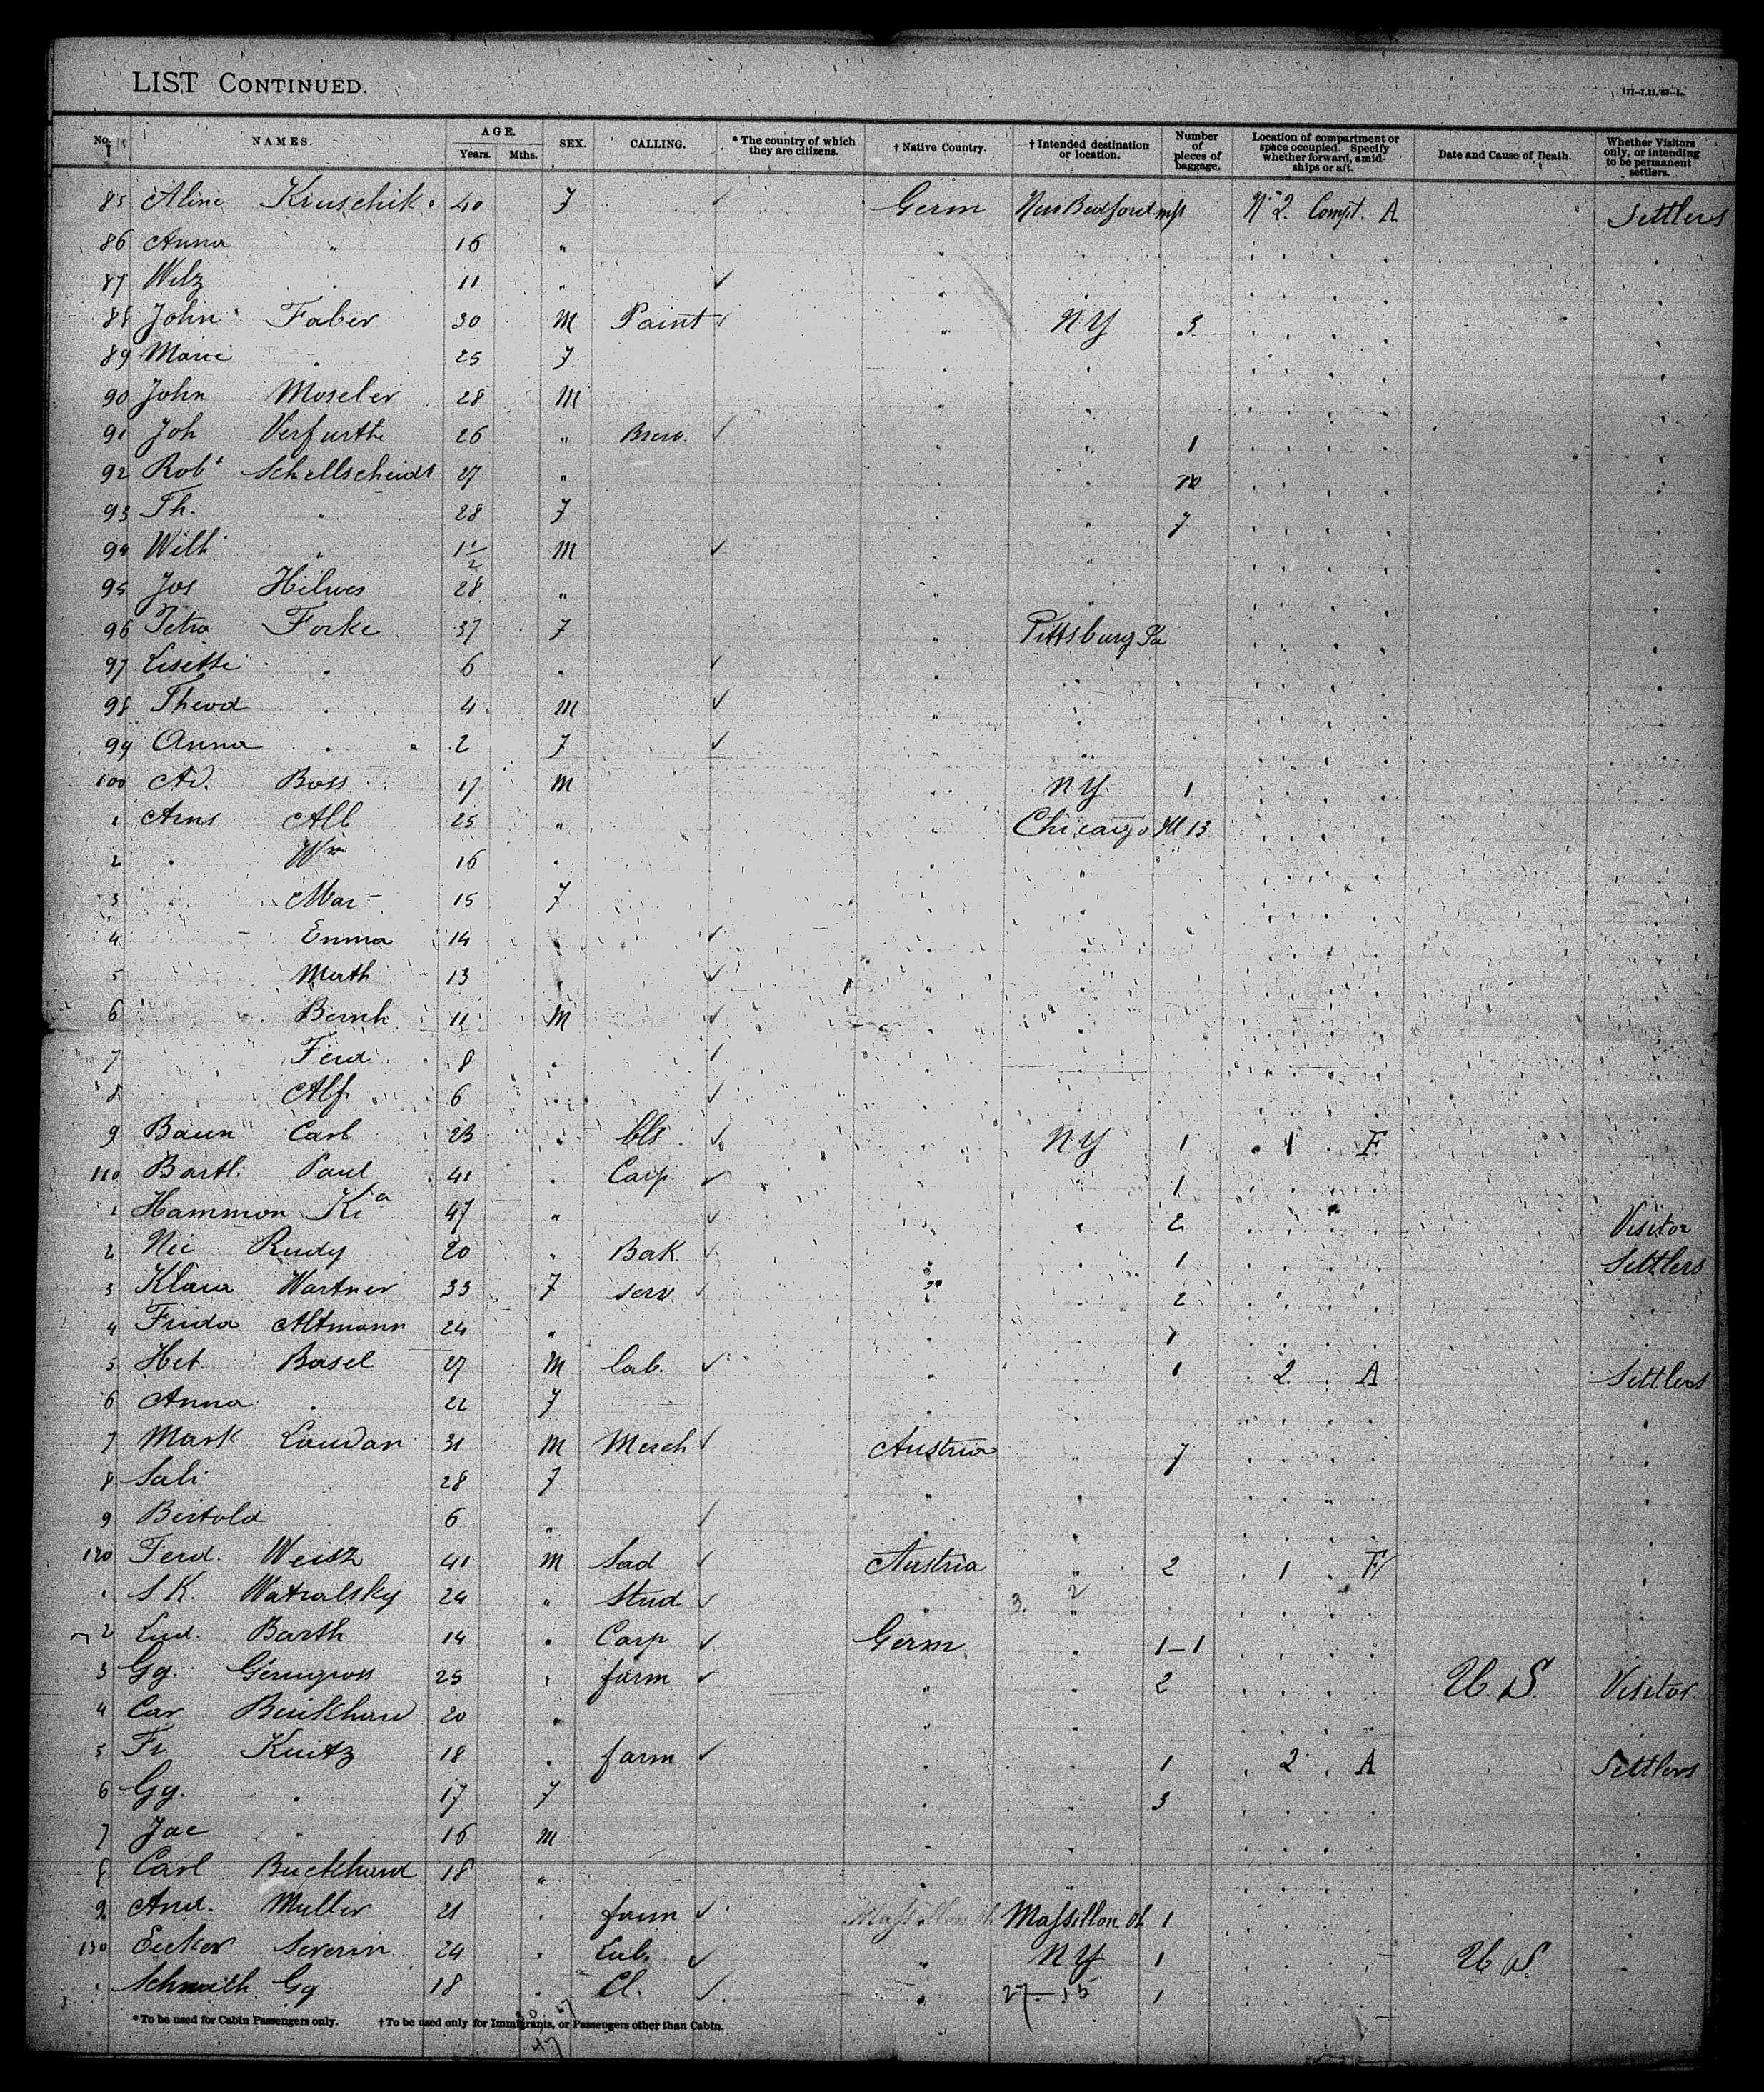 LIST CONTINUED.
No. NAMES. AGE. Years. Mths. SEX. CALLING. * The country of which they are citizens. † Native Country. † Intended destination or location. Number of pieces of baggage. Location of compartment or space occupied. Specify whether forward, amidships or aft. Date and Cause of Death. Whether Visitors only, or intending to be permanent settlers.
85 Aline Kruschik 40 F Germ New Bedford No 2 Compt. A Settlers
86 Anna " 16 "
87 11 " ✓
88 John Faber 30 M Paint ✓ " NY 3
89 Marie " 25 F
90 John Moseler 28 M
91 Joh Verfurth 26 " Brew. ✓ 1
92 Robt Schellscheidt 27 "
93 Th. " 28 F " 7
94 Wilh " 1 1/2 M ✓
95 Jos Hilwes 28 " "
96 Petra Forke 37 F " Pittsburg Pa
97 Lisette " 6 " ✓
98 Theod " 4 M ✓
99 Anna " 2 F ✓
100 Ad. Boss 17 M NY 1
1 Arns Alb 25 " Chicago Ill 13
2 " Wm 16 "
3 " Mar 15 F
4 Emma 14 ✓
5 Math 13 ✓
6 Bernh 11 M ✓
7 Ferd 8 " ✓
8 Alf 6 " ✓
9 Baum Carl 23 " ✓ NY 1 1 F
110 Bartl. Paul 41 " Carp ✓ 1
1 Hammon 47 " ✓ " 2 Visitor
2 Nic Rudy 20 " Bak ✓ 1 Settlers
3 Klara Wartner 33 F serv ✓ 2
4 Frida Altmann 24 " 1
5 Het Basel 27 M Lab. ✓ 1 2 A Settlers
6 Anna " 22 F
7 Mark Landan 31 M Merch ✓ Austria 7
8 Sali 28 F "
9 Bertold 6 " ✓
120 Ferd. Weisz 41 M Sad ✓ Austria " 2 1 F
1 S K. Watralsky 24 " Stud ✓ "
2 Lud. Barth 14 " Carp ✓ Germ " 1-1
3 Gg. Gerngross 25 " farm ✓ " 2 U.S. Visitor
4 Car 20 "
5 Fr 18 " farm ✓ 1 2 A Settlers
6 Gg. " 17 F 3
7 Jac " 16 M
8 Carl Buckhard 18 "
9 And. Muller 21 " farm ✓ Massillon Oh 1
130 Ecker Severin 24 " Lab. ✓ " NY 1 U S.
Gg 18 " Cl. ✓ " 27-15 1
*To be used for Cabin Passengers only. †To be used only for Immigrants, or Passengers other than Cabin.